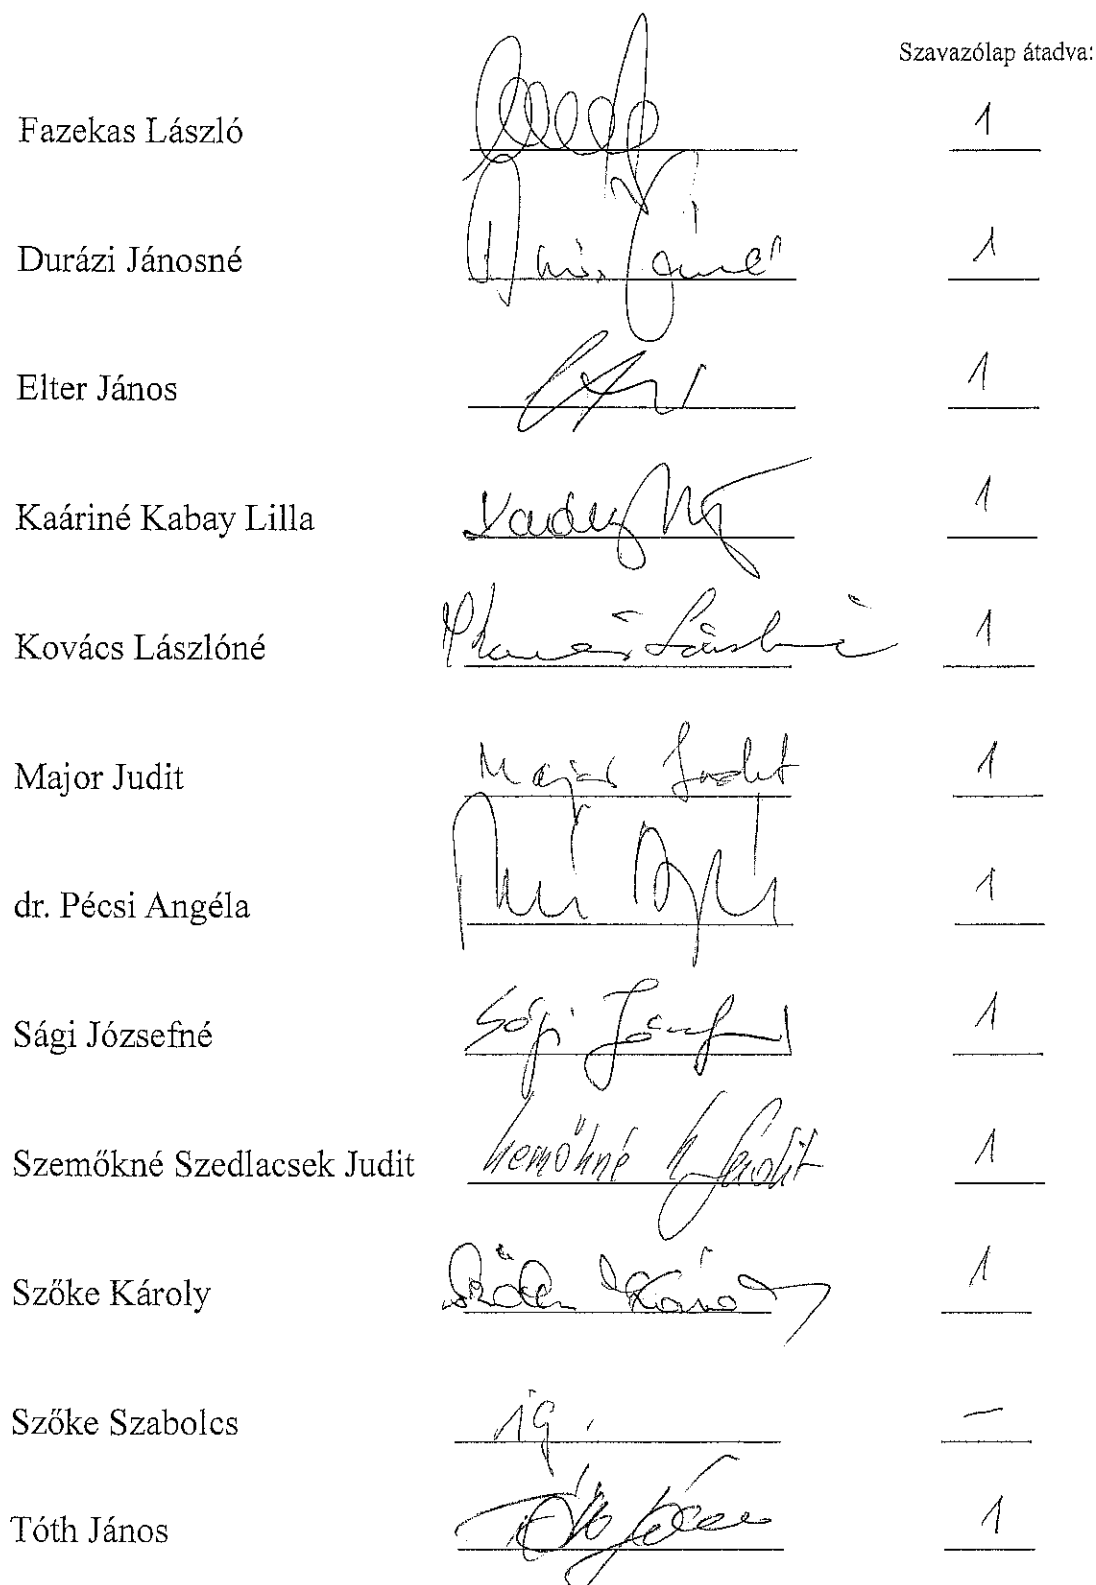 Szavazólap átadva:
Fazekas László 1
Durázi Jánosné 1
Elter János 1
Kaáriné Kabay Lilla 1
Kovács Lászlóné Kovács Lászlóné 1
Major Judit Major Judit 1
dr. Pécsi Angéla 1
Sági Józsefné Sági Józsefné 1
Szemőkné Szedlacsek Judit Szemőkné Sz Judit 1
Szőke Károly Szőke Károly 1
Szőke Szabolcs ig. –
Tóth János Tóth János 1